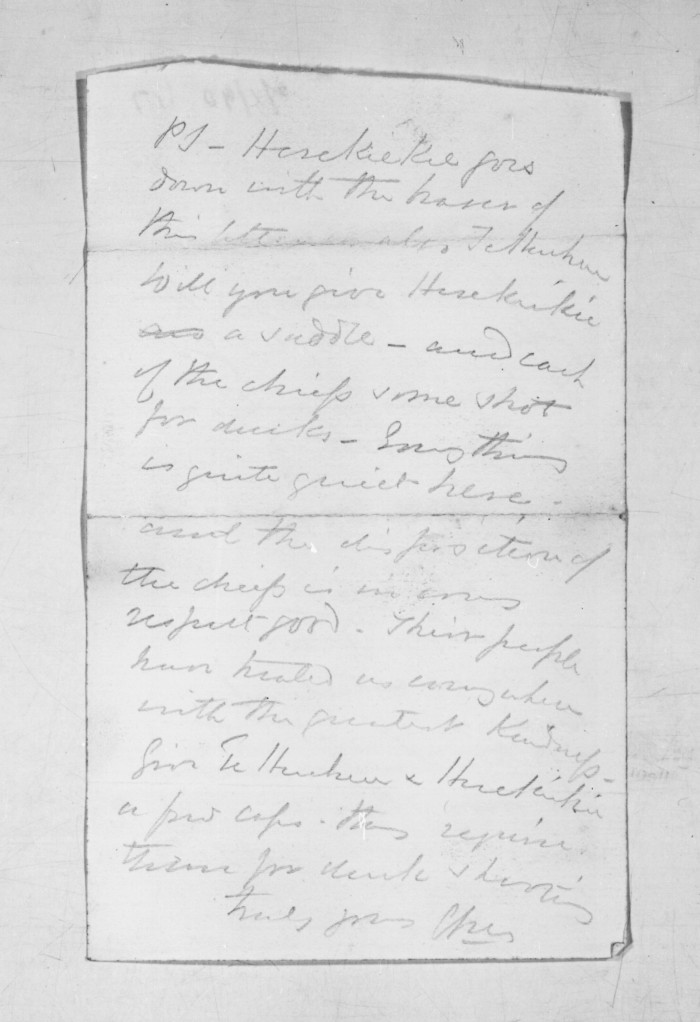 PS – Herekiekie goes
down with the bearer of
this letter also Te Heuheu
Will you give Herekiekie
a saddle – and each
of the chiefs some shot
for ducks – Everything
is quite quiet here –
and the disposition of
the chiefs is in every
respect good. Their people
have treated us everywhere
with the greatest Kindness –
Give Te Heuheu & Herekiekie
a few caps – they require
them for duck shooting
truly yours